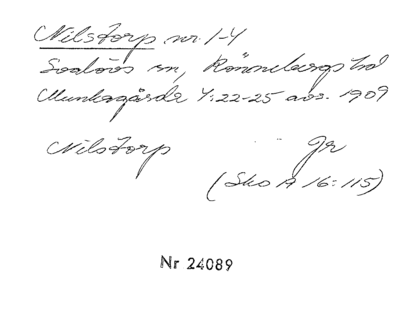 Nilstorp nr. 1-4
Svalövs sn, Rönnebergs hd
Munkagårda 4:22-25 avs. 1909
Nilstorp Jr
(Sko A 16:115)
Nr 24089